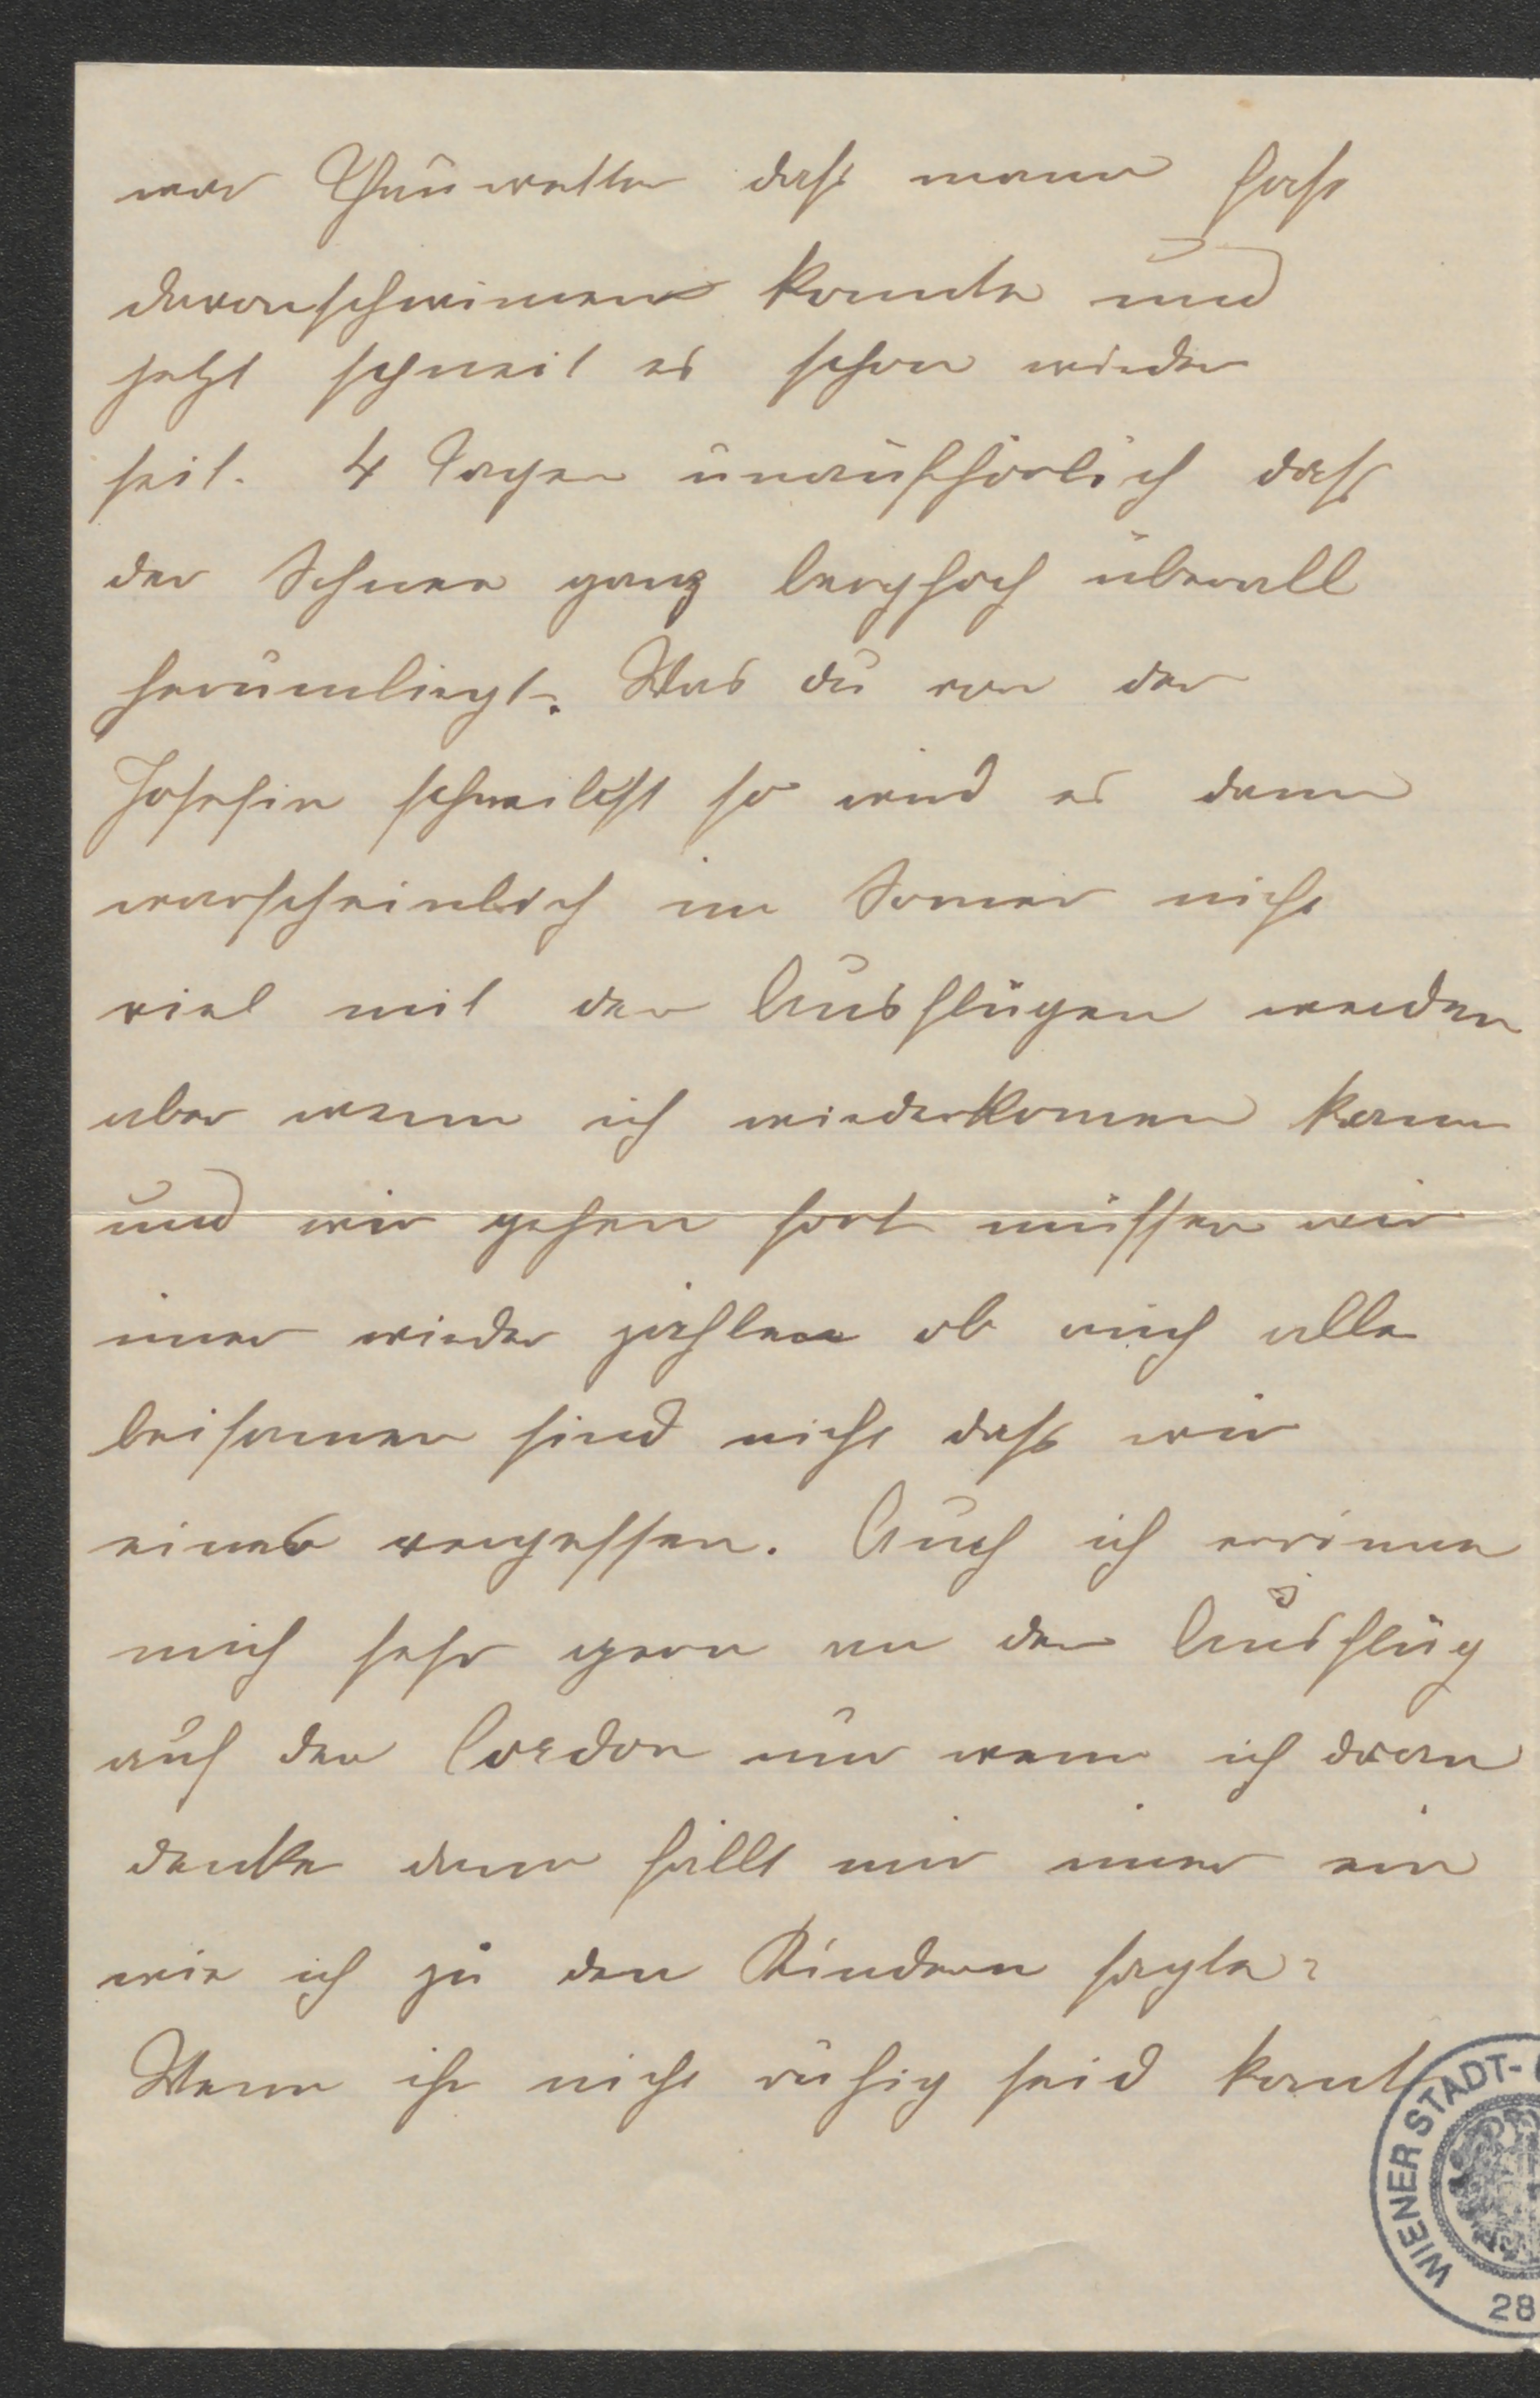 war Thauwetter daß mann fast
davonschwimen konnte und
jetzt schneit es schon wieder
seit. 4 Tagen unaufhörlich daß
der Schnee ganz berghoch überall
herumliegt. Was du von der
Josefin schreibst so wird es dann
warscheinlich im Somer nicht
viel mit den Ausflügen werden
aber wenn ich wiederkomen kann
und wir gehen fort müssen wir
imer wieder zählen ob auch alle
beisamen sind nicht daß wir
eines vergessen. Auch ich errinne
mich sehr gern an den Ausflug
auf den Cordon nur wenn ich dran
denke dann fällt mir imer ein
wie ich zu den Kindern sagte:
Wenn ihr nicht ruhig seid könnt
WIENER STADT-
28